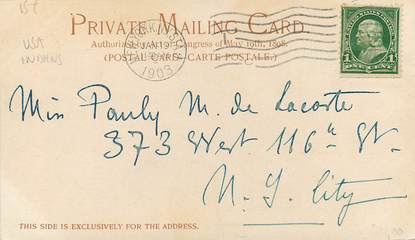 15t
USA
INDIANS
PRIVATE MAILING CARD.
Authorized by Act of Congress of May 19th, 1898.
(POSTAL CARD-CARTE POSTALE.)
NEW YORK, N.Y.
JAN 19
1903
1 ONE CENT 1
Miss Pauly M. de Lacoste
373 West 116th St.
N. Y. City
THIS SIDE IS EXCLUSIVELY FOR THE ADDRESS.